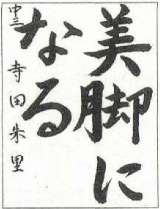 美脚に
なる
中三 寺田朱里